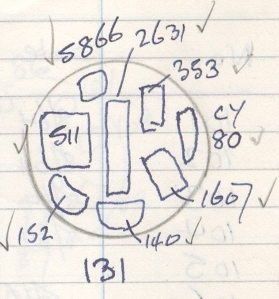 5866
2631
353
511
CY
80
1607
152
140
131